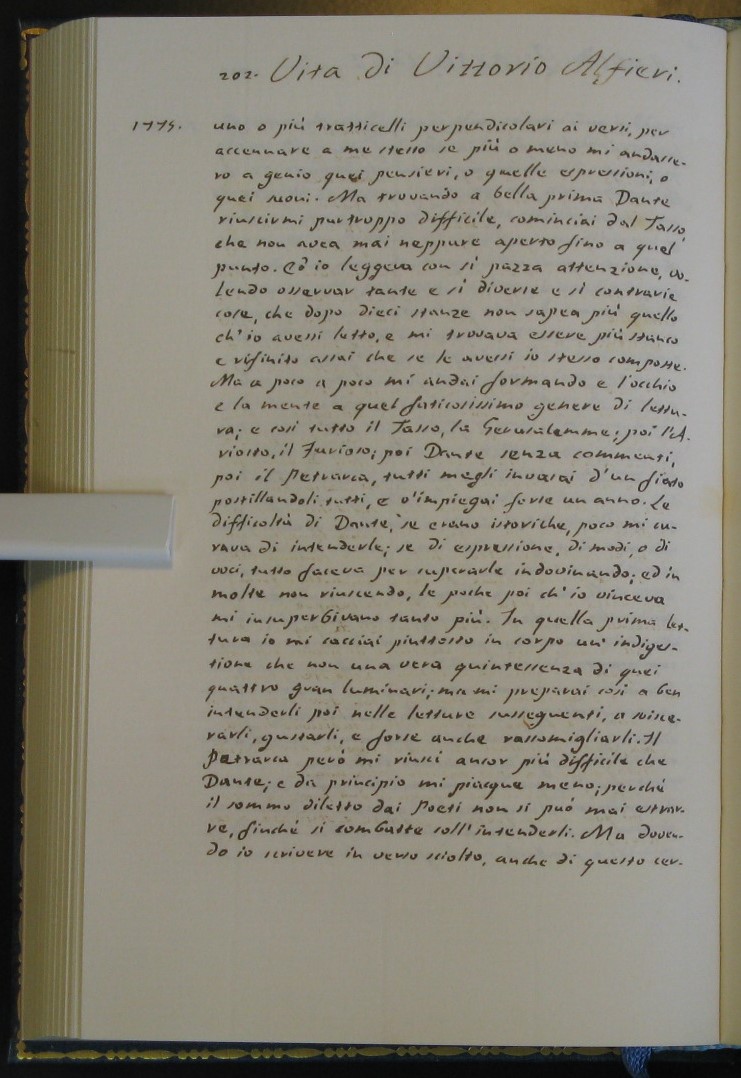 202. Vita di Vittorio Alfieri.
1775. uno o più tratticelli perpendicolari ai versi, per
accennare a me stesso se più o meno mi andasse-
ro a genio quei pensieri, o quelle espressioni, o
quei suoni. Ma trovando a bella prima Dante
riuscirmi purtroppo difficile, cominciai dal Tasso,
che non avea mai neppure aperto fino a quel
punto. Ed io leggeva con sì pazza attenzione, vo-
lendo osservar tante e sì diverse e sì contrarie
cose, che dopo dieci stanze non sapea più quello
ch'io avessi letto, e mi trovava essere più stanco
e rifinito assai che se le avessi io stesso composte.
Ma a poco a poco mi andai formando e l'occhio
e la mente a quel faticosissimo genere di lettu-
ra; e così tutto il Tasso, la Gerusalemme; poi l'A-
riosto, il Furioso; poi Dante senza commenti,
poi il Petrarca, tutti me gli invasai d'un fiato
postillandoli tutti, e v'impiegai forse un anno. Le
difficoltà di Dante, se erano istoriche, poco mi cu-
rava di intenderle; se di espressione, di modi, o di
voci, tutto faceva per superarle indovinando; ed in
molte non riuscendo, le poche poi ch'io vinceva
mi insuperbivano tanto più. In quella prima let-
tura io mi cacciai piuttosto in corpo un' indiges-
tione che non una vera quintessenza di quei
quattro gran luminari; ma mi preparai così a ben
intenderli poi nelle letture susseguenti, a svisce-
rarli, gustarli, e forse anche rassomigliarli. Il
Petrarca però mi riuscì ancor più difficile che
Dante; e da principio mi piacque meno; perché
il sommo diletto dai Poeti non si può mai estrar-
re, finché si combatte coll'intenderli. Ma doven-
do io scrivere in verso sciolto, anche di questo cer-